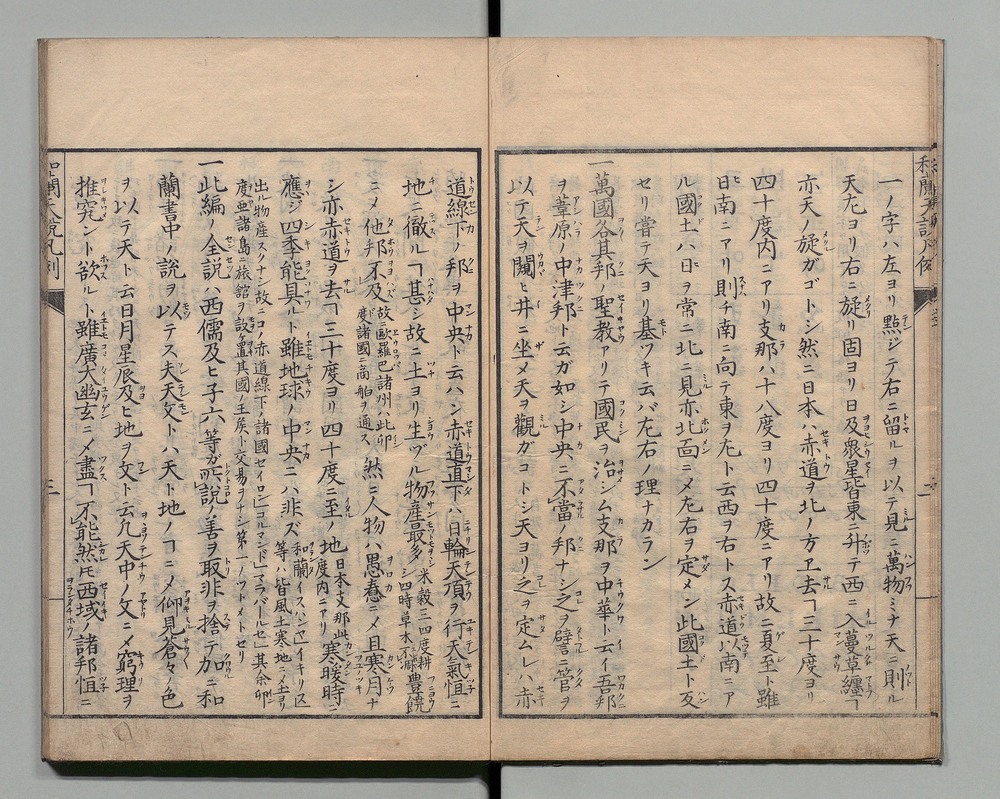 一ノ字ハ左ヨリ點ジテ右ニ留ルヲ以テ見ニ萬物ミナ天ニ則ル
天左ヨリ右ニ旋リ固ヨリ日及衆星皆東ニ升テ西ニ入蔓草纏ヿ
亦天ノ旋ガゴトシ然ニ日本ハ赤道ヲ北ノ方ヱ去ヿ三十度ヨリ
四十度内ニアリ支那ハ十八度ヨリ四十度ニアリ故ニ夏至ト雖
日南ニアリ則チ南ニ向テ東ヲ左ト云西ヲ右トス赤道ノ南ニア
ル國土ハ日ヲ常ニ北ニ見亦北面ニメ左右ヲ定メン此國土ト反
セリ嘗テ天ヨリ基ヅキ云バ左右ノ理ナカラン
一萬國各其邦ノ聖教アリテ國民ヲ治シム支那ヲ中華ト云イ吾邦
ヲ葦原ノ中津邦ト云ガ如シ中央ニ不當ノ邦ナシ之ヲ譬ニ管ヲ
以テ天ヲ闚ヒ井ニ坐メ天ヲ觀ガコトシ天ヨリ之ヲ定ムレハ赤
道線下ノ邦ヲ中央ト云ハン赤道直下ハ日輪天頂ヲ行天氣恒ニ
地ニ徹ルヿ甚シ故ニ土ヨリ生ヅル物産最多
米穀二四度耕シ四時草木不凋豊饒
ニメ他邦不及
故ニ歐羅巴諸州ハ此卭度諸國ニ商舶ヲ通ス
然ニ人物ハ愚憃ニメ且寒月ナ
シ亦赤道ヲ去ヿ三十度ヨリ四十度ニ至ノ地
日本支那此度内ニアリ
寒暖時ニ
應ジ四季能具ルト雖地球ノ中央ニハ非ズ
和蘭イスハンヤイキリス等ハ皆風土寒地ニメ土ヨリ
出ル物産スクナシ故ニコノ赤道線下ノ諸國セイロンコルマンドマラバールセ其余卭
度亜諸島ニ旅館ヲ設ケ置其國ノ王矦ト交易ヲナシ第一ノツトメトセリ
一此編ノ全説ハ西儒及ヒ子六等ガ所説ノ善ヲ取非ヲ捨テ加ニ和
蘭書中ノ説ヲ以テス夫天文トハ天ト地ノヿニメ仰見蒼々ノ色
ヲ以テ天ト云日月星辰及ヒ地ヲ文ト云凡天中ノ文ニメ窮理ヲ
推究ント欲ルト雖廣大幽玄ニメ盡ヿ不能然㪽西域ノ諸邦恒ニ
和蘭天説凡例